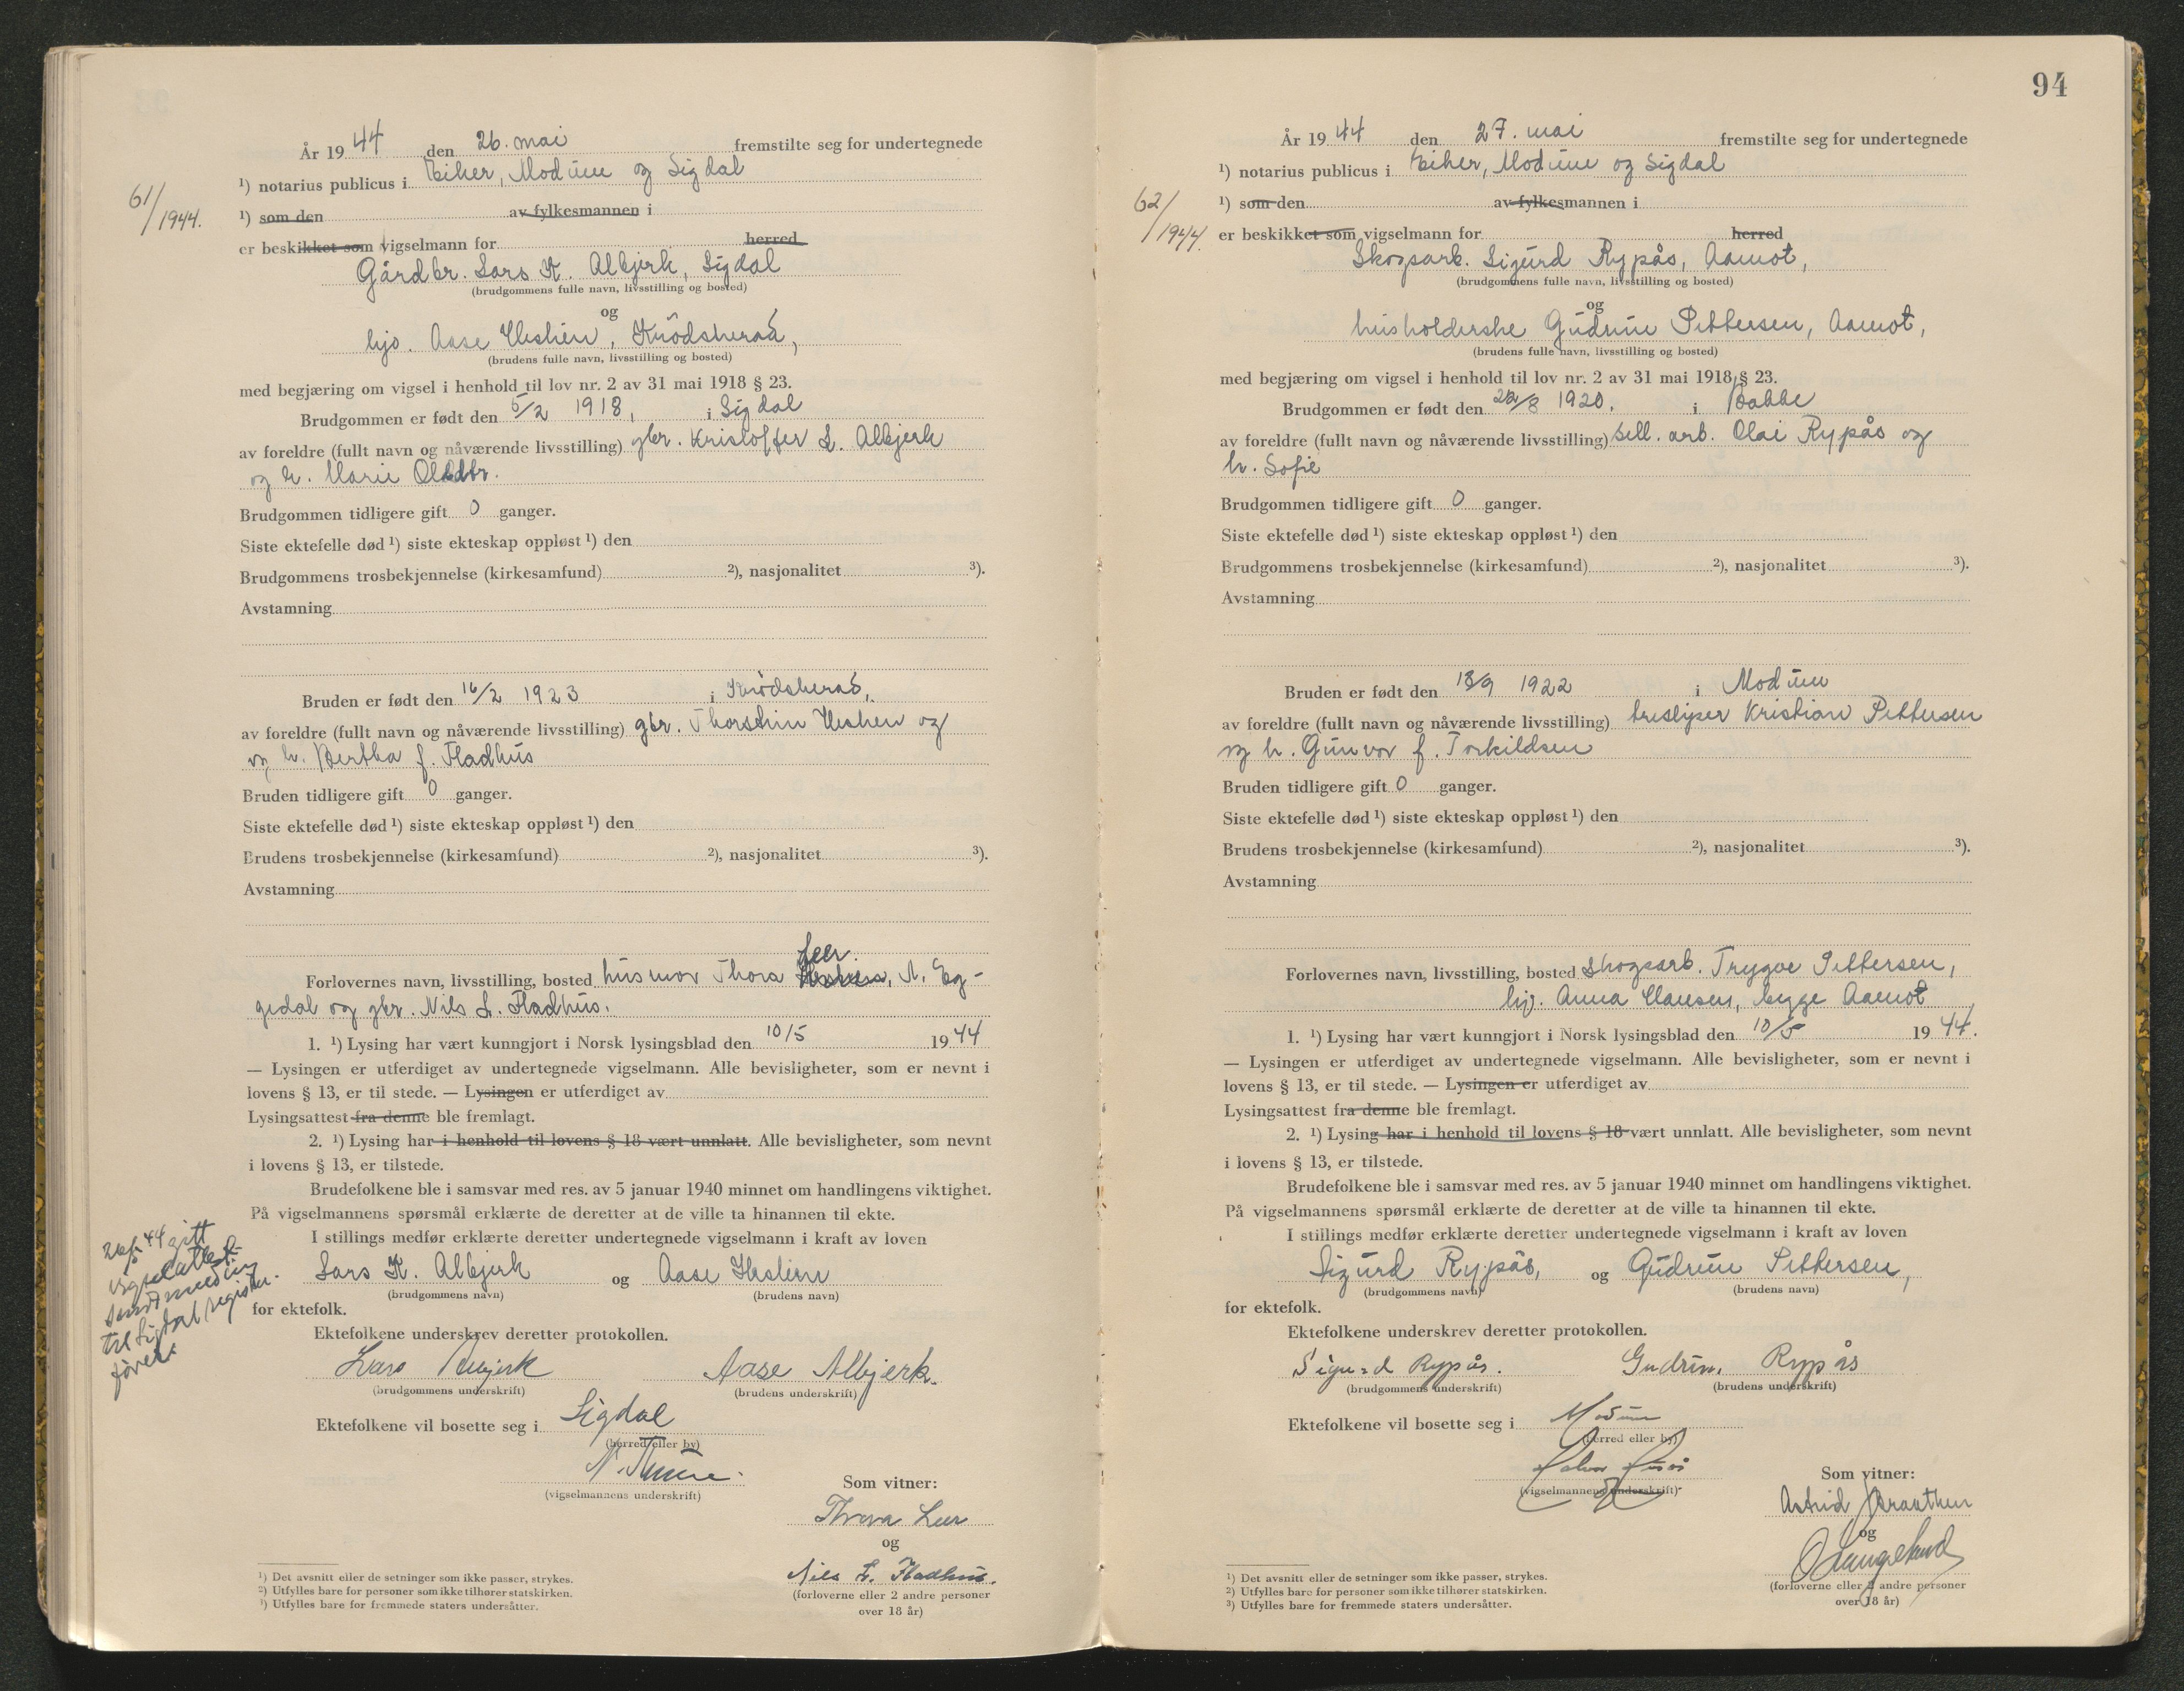 61/1944.
År 1944 den 26. mai fremstilte seg for undertegnede
¹) notarius publicus i Eiker, Modum og Sigdal
¹) som den av fylkesmannen i
er beskikket som vigselmann for herred
Gårdbr. Lars K. Albjerk, Sigdal
(brudgommens fulle navn, livsstilling og bosted)
og
hjv. Aase Heslien, Krødsherad,
(brudens fulle navn, livsstilling og bosted)
med begjæring om vigsel i henhold til lov nr. 2 av 31 mai 1918 § 23.
Brudgommen er født den 5/2 1918, i Sigdal
av foreldre (fullt navn og nåværende livsstilling) gbr. Kristoffer L. Albjerk
og h. Marie
Brudgommen tidligere gift 0 ganger.
Siste ektefelle død ¹) siste ekteskap oppløst ¹) den
Brudgommens trosbekjennelse (kirkesamfund) ²), nasjonalitet ³).
Avstamning
Bruden er født den 16/2 1923 i Krødsherad,
av foreldre (fullt navn og nåværende livsstilling) gbr. Thorstein Heslien og
og h. Bertha f. Fladhus
Bruden tidligere gift 0 ganger.
Siste ektefelle død ¹) siste ekteskap oppløst ¹) den
Brudens trosbekjennelse (kirkesamfund) ²), nasjonalitet ³).
Avstamning
Leer.
Forlovernes navn, livsstilling, bosted husmor Thora N. Eg-
gedal og gbr. Nils L. Fladhus.
1. ¹) Lysing har vært kunngjort i Norsk lysingsblad den 10/5 1944
— Lysingen er utferdiget av undertegnede vigselmann. Alle bevisligheter, som er nevnt i
lovens § 13, er til stede. — Lysingen er utferdiget av
Lysingsattest fra denne ble fremlagt.
2. ¹) Lysing har i henhold til lovens § 18 vært unnlatt. Alle bevisligheter, som nevnt
i lovens § 13, er tilstede.
Brudefolkene ble i samsvar med res. av 5 januar 1940 minnet om handlingens viktighet.
På vigselmannens spørsmål erklærte de deretter at de ville ta hinannen til ekte.
I stillings medfør erklærte deretter undertegnede vigselmann i kraft av loven
Lars K. Albjerk og Aase Heslien
(brudgommens navn) (brudens navn)
for ektefolk.
26/5 44 gitt
vigselattest
til Sigdal
Ektefolkene underskrev deretter protokollen.
Lars Albjerk Aase Albjerk.
(brudgommens underskrift) (brudens underskrift)
Ektefolkene vil bosette seg i Sigdal
(herred eller by)
(vigselmannens underskrift)
Som vitner:
Thora Leer
og
Nils L. Fladhus.
(forloverne eller 2 andre personer
over 18 år)
¹) Det avsnitt eller de setninger som ikke passer, strykes.
²) Utfylles bare for personer som ikke tilhører statskirken.
³) Utfylles bare for fremmede staters undersåtter.
94
62/1944.
År 1944 den 27. mai fremstilte seg for undertegnede
¹) notarius publicus i Eiker, Modum og Sigdal
¹) som den av fylkesmannen i
er beskikket som vigselmann for herred
Skogsarb. Sigurd Rypås, Aamot,
(brudgommens fulle navn, livsstilling og bosted)
og
husholderske Gudrun Pettersen, Aamot,
(brudens fulle navn, livsstilling og bosted)
med begjæring om vigsel i henhold til lov nr. 2 av 31 mai 1918 § 23.
Brudgommen er født den 22/8 1920. i
av foreldre (fullt navn og nåværende livsstilling) sell. arb. Olai Rypås og
h. Sofie
Brudgommen tidligere gift 0 ganger.
Siste ektefelle død ¹) siste ekteskap oppløst ¹) den
Brudgommens trosbekjennelse (kirkesamfund) ²), nasjonalitet ³).
Avstamning
Bruden er født den 13/9 1922 i Modum
av foreldre (fullt navn og nåværende livsstilling) tresliper Kristian Pettersen
og h. Gunvor f. Torkildsen
Bruden tidligere gift 0 ganger.
Siste ektefelle død ¹) siste ekteskap oppløst ¹) den
Brudens trosbekjennelse (kirkesamfund) ²), nasjonalitet ³).
Avstamning
Forlovernes navn, livsstilling, bosted Skogsarb. Trygve Pettersen,
hjv. Anna Hansen, begge Aamot
1. ¹) Lysing har vært kunngjort i Norsk lysingsblad den 10/5 1944.
— Lysingen er utferdiget av undertegnede vigselmann. Alle bevisligheter, som er nevnt i
lovens § 13, er til stede. — Lysingen er utferdiget av
Lysingsattest fra denne ble fremlagt.
2. ¹) Lysing har i henhold til lovens § 18 vært unnlatt. Alle bevisligheter, som nevnt
i lovens § 13, er tilstede.
Brudefolkene ble i samsvar med res. av 5 januar 1940 minnet om handlingens viktighet.
På vigselmannens spørsmål erklærte de deretter at de ville ta hinannen til ekte.
I stillings medfør erklærte deretter undertegnede vigselmann i kraft av loven
Sigurd Rypås, og Gudrun Pettersen,
(brudgommens navn) (brudens navn)
for ektefolk.
Ektefolkene underskrev deretter protokollen.
Sigurd Rypås. Gudrun Rypås
(brudgommens underskrift) (brudens underskrift)
Ektefolkene vil bosette seg i Modum
(herred eller by)
(vigselmannens underskrift)
Som vitner:
Astrid Braathen
og
O Langeland
(forloverne eller 2 andre personer
over 18 år)
¹) Det avsnitt eller de setninger som ikke passer, strykes.
²) Utfylles bare for personer som ikke tilhører statskirken.
³) Utfylles bare for fremmede staters undersåtter.